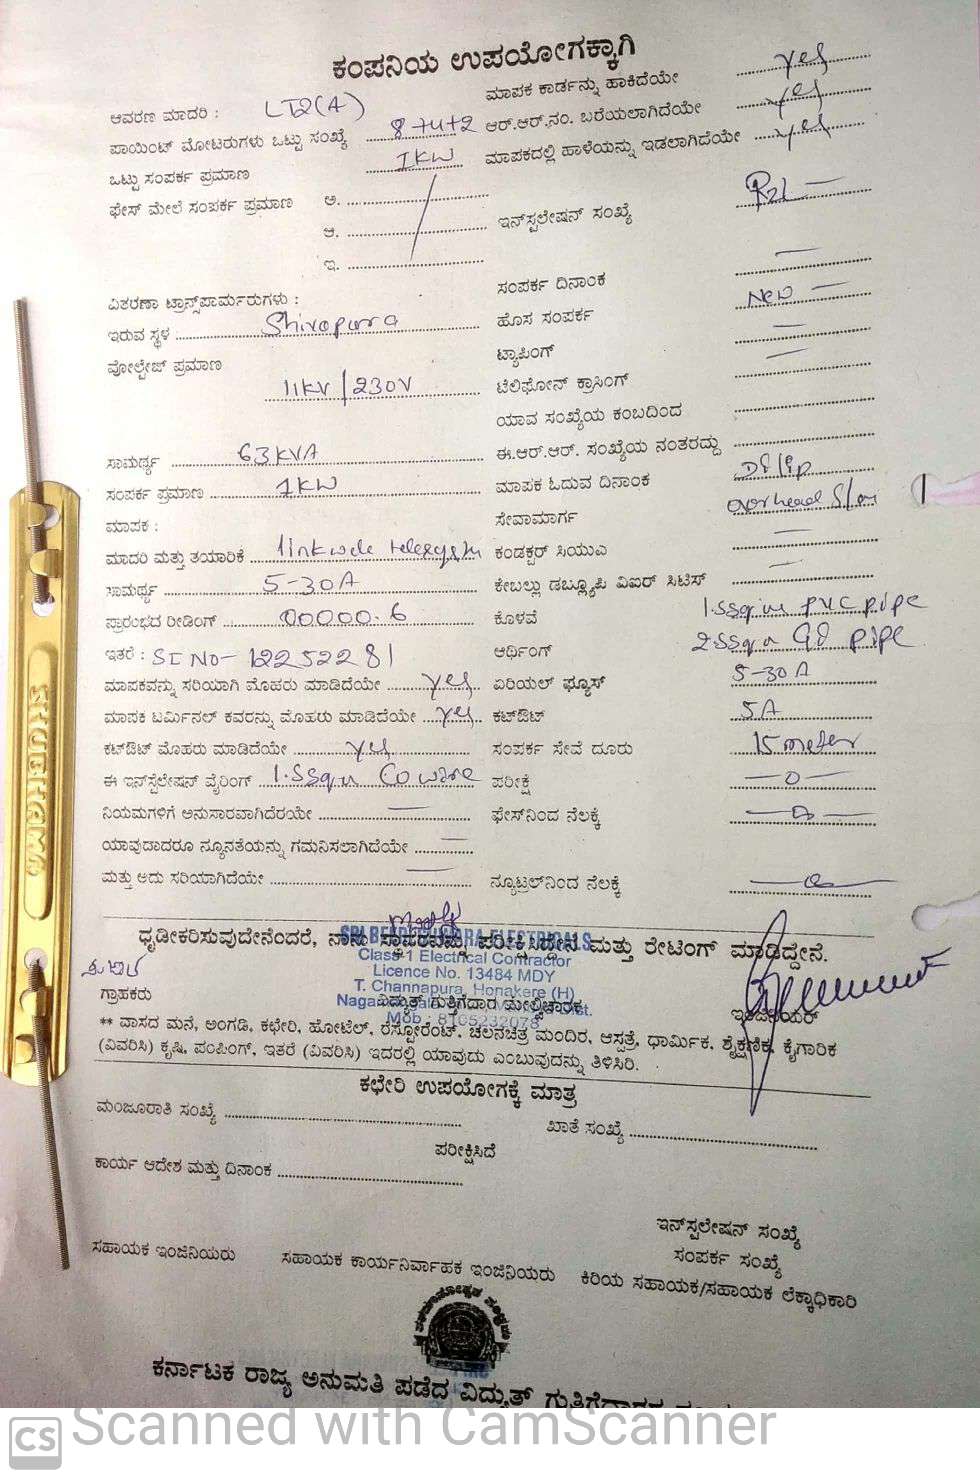 ಕಂಪನಿಯ ಉಪಯೋಗಕ್ಕಾಗಿ
ಆವರಣ ಮಾದರಿ : LT2(A)
ಮಾಪಕ ಕಾರ್ಡನ್ನು ಹಾಕಿದೆಯೇ yes
ಪಾಯಿಂಟ್ ಮೋಟರುಗಳು ಒಟ್ಟು ಸಂಖ್ಯೆ 8+4+2
ಆರ್.ಆರ್.ನಂ. ಬರೆಯಲಾಗಿದೆಯೇ yes
ಒಟ್ಟು ಸಂಪರ್ಕ ಪ್ರಮಾಣ 1KW
ಮಾಪಕದಲ್ಲಿ ಹಾಳೆಯನ್ನು ಇಡಲಾಗಿದೆಯೇ yes
ಫೇಸ್ ಮೇಲೆ ಸಂಪರ್ಕ ಪ್ರಮಾಣ ಅ.
ಆ.
ಇನ್‌ಸ್ಪಲೇಷನ್ ಸಂಖ್ಯೆ
ಇ.
ಸಂಪರ್ಕ ದಿನಾಂಕ —
ವಿತರಣಾ ಟ್ರಾನ್ಸ್‌ಪಾರ್ಮರುಗಳು :
ಇರುವ ಸ್ಥಳ Shivapura
ಹೊಸ ಸಂಪರ್ಕ New —
ವೋಲ್ಟೇಜ್ ಪ್ರಮಾಣ
ಟ್ಯಾಪಿಂಗ್ —
11KV/230V
ಟೆಲಿಫೋನ್ ಕ್ರಾಸಿಂಗ್ —
ಯಾವ ಸಂಖ್ಯೆಯ ಕಂಬದಿಂದ
ಸಾಮರ್ಥ್ಯ 63KVA
ಈ.ಆರ್.ಆರ್. ಸಂಖ್ಯೆಯ ನಂತರದ್ದು
ಸಂಪರ್ಕ ಪ್ರಮಾಣ 1KW
ಮಾಪಕ ಓದುವ ದಿನಾಂಕ
ಮಾಪಕ :
ಸೇವಾಮಾರ್ಗ overhead
ಮಾದರಿ ಮತ್ತು ತಯಾರಿಕೆ linkwele
ಕಂಡಕ್ಟರ್ ಸಿಯುವಿ —
ಸಾಮರ್ಥ್ಯ 5-30A
ಕೇಬಲ್ಲು ಡಬ್ಲ್ಯೂಪಿ ವಿಐರ್ ಸಿಟಿಸ್ —
ಪ್ರಾರಂಭದ ರೀಡಿಂಗ್ 00000.6
ಕೊಳವೆ 1.5sqm PVC pipe
ಇತರೆ : SI NO- 12252281
ಆರ್ಥಿಂಗ್ 2.5sqm GI pipe
ಮಾಪಕವನ್ನು ಸರಿಯಾಗಿ ಮೊಹರು ಮಾಡಿದೆಯೇ yes
ಏರಿಯಲ್ ಫ್ಯೂಸ್ 5-30A
ಮಾಪಕ ಟರ್ಮಿನಲ್ ಕವರನ್ನು ಮೊಹರು ಮಾಡಿದೆಯೇ yes
ಕಟ್‌ಔಟ್ 5A
ಕಟ್‌ಔಟ್ ಮೊಹರು ಮಾಡಿದೆಯೇ yes
ಸಂಪರ್ಕ ಸೇವೆ ದೂರು 15 meter
ಈ ಇನ್‌ಸ್ಪೆಲೇಷನ್ ವೈರಿಂಗ್ 1.5sqm Co wire
ಪರೀಕ್ಷೆ —0—
ನಿಯಮಗಳಿಗೆ ಅನುಸಾರವಾಗಿದೆರಯೇ —
ಫೇಸ್‌ನಿಂದ ನೆಲಕ್ಕೆ —0—
ಯಾವುದಾದರೂ ನ್ಯೂನತೆಯನ್ನು ಗಮನಿಸಲಾಗಿದೆಯೇ —
ಮತ್ತು ಅದು ಸರಿಯಾಗಿದೆಯೇ —
ನ್ಯೂಟ್ರಲ್‌ನಿಂದ ನೆಲಕ್ಕೆ —0—
ಧೃಢೀಕರಿಸುವುದೇನೆಂದರೆ, ನಾನು ಸ್ಥಾವರವನ್ನು ಪರೀಕ್ಷಿಸಿದ್ದೇನೆ ಮತ್ತು ರೇಟಿಂಗ್ ಮಾಡಿದ್ದೇನೆ.
ELECTRICALS
Class-1 Electrical Contractor
Licence No. 13484 MDY
T. Channapura, Honakere (H)
ಗ್ರಾಹಕರು
ವಿದ್ಯುತ್ ಗುತ್ತಿಗೆದಾರ ಮೇಲ್ವಿಚಾರಕ
ಇಂಜಿನಿಯರ್
Mob : 8105232078
** ವಾಸದ ಮನೆ, ಅಂಗಡಿ, ಕಛೇರಿ, ಹೋಟೆಲ್, ರೆಸ್ಟೋರೆಂಟ್, ಚಲನಚಿತ್ರ ಮಂದಿರ, ಆಸ್ಪತ್ರೆ, ಧಾರ್ಮಿಕ, ಶೈಕ್ಷಣಿಕ, ಕೈಗಾರಿಕ
(ವಿವರಿಸಿ) ಕೃಷಿ, ಪಂಪಿಂಗ್, ಇತರೆ (ವಿವರಿಸಿ) ಇದರಲ್ಲಿ ಯಾವುದು ಎಂಬುವುದನ್ನು ತಿಳಿಸಿರಿ.
ಕಛೇರಿ ಉಪಯೋಗಕ್ಕೆ ಮಾತ್ರ
ಮಂಜೂರಾತಿ ಸಂಖ್ಯೆ
ಖಾತೆ ಸಂಖ್ಯೆ
ಪರೀಕ್ಷಿಸಿದೆ
ಕಾರ್ಯ ಆದೇಶ ಮತ್ತು ದಿನಾಂಕ
ಇನ್‌ಸ್ಪಲೇಷನ್ ಸಂಖ್ಯೆ
ಸಂಪರ್ಕ ಸಂಖ್ಯೆ
ಸಹಾಯಕ ಇಂಜಿನಿಯರು ಸಹಾಯಕ ಕಾರ್ಯನಿರ್ವಾಹಕ ಇಂಜಿನಿಯರು ಕಿರಿಯ ಸಹಾಯಕ/ಸಹಾಯಕ ಲೆಕ್ಕಾಧಿಕಾರಿ
ಕರ್ನಾಟಕ ರಾಜ್ಯ ಅನುಮತಿ ಪಡೆದ ವಿದ್ಯುತ್ ಗುತ್ತಿಗೆದಾರರ
SHUBHAMS
CS Scanned with CamScanner